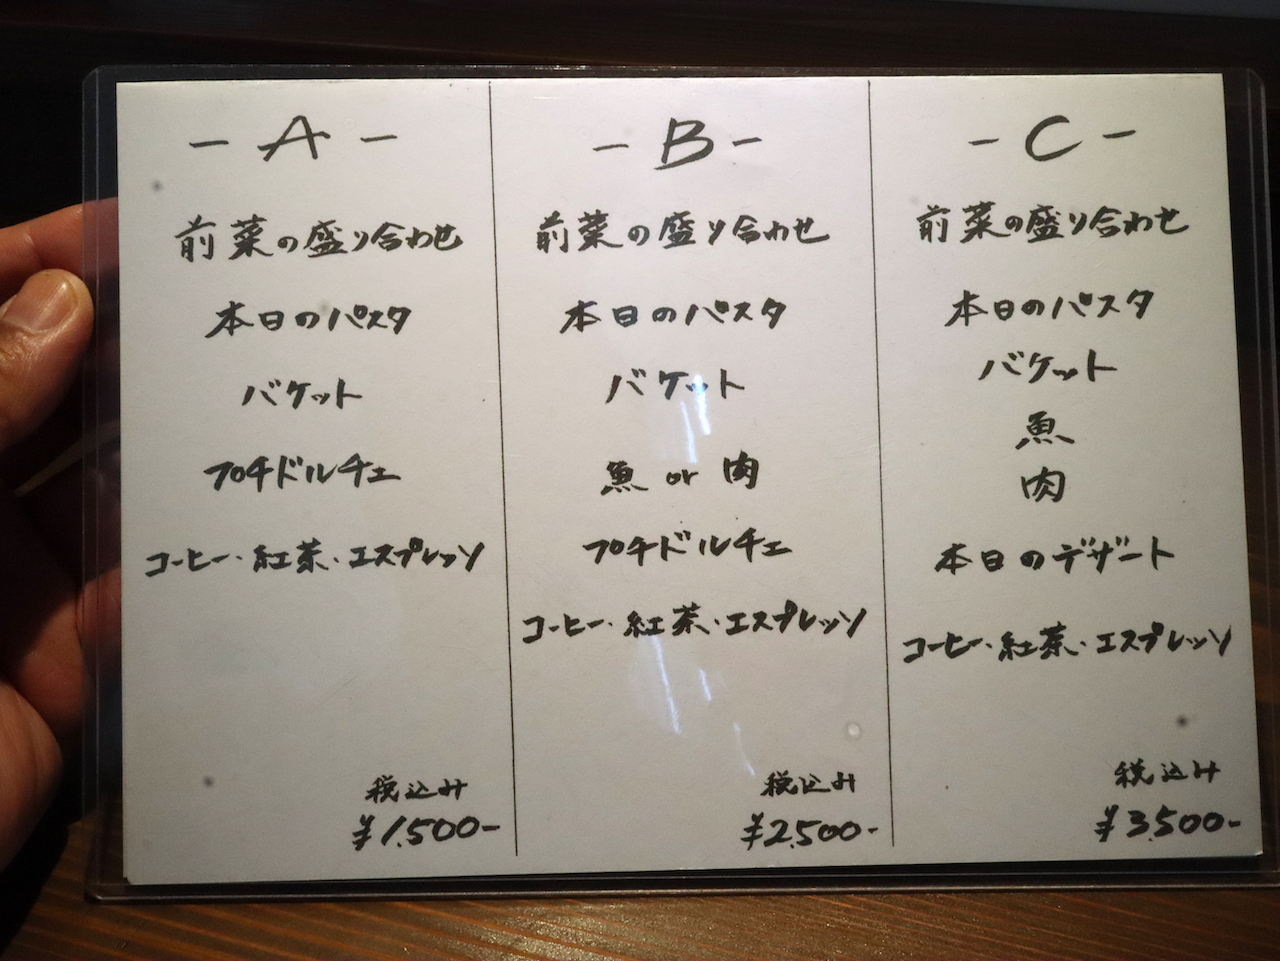 - A -
前菜の盛り合わせ
本日のパスタ
バケット
プチドルチェ
コーヒー・紅茶・エスプレッソ
税込み
¥1,500-
- B -
前菜の盛り合わせ
本日のパスタ
バケット
魚 or 肉
プチドルチェ
コーヒー・紅茶・エスプレッソ
税込み
¥2,500-
- C -
前菜の盛り合わせ
本日のパスタ
バケット
魚
肉
本日のデザート
コーヒー・紅茶・エスプレッソ
税込み
¥3,500-